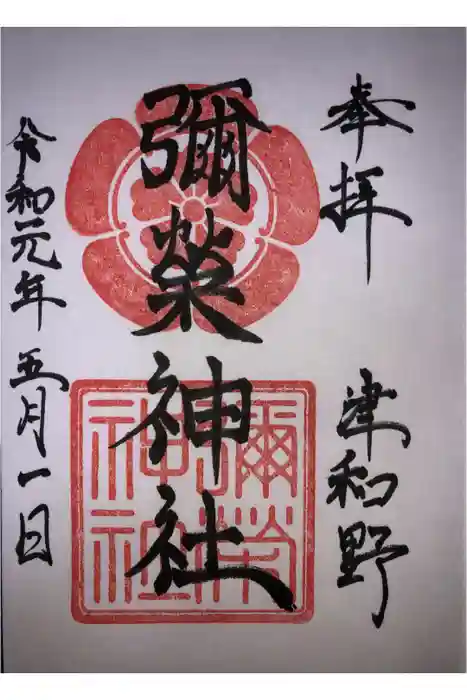 奉拝 津和野
彌榮神社
彌榮
神社
令和元年五月一日